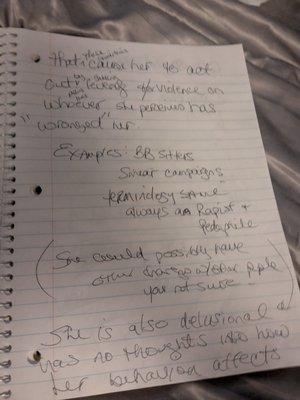 that cause her to act
out revenge &/or violence on
whoever she perceives has
"wronged" her.
Examples: BB sitters
Smear campaigns
terminology same
always a Rapist &
Pedophile
(She could possibly have
other w/other people
your not sure)
She is also delusional &
has no thoughts into how
her behavior affects